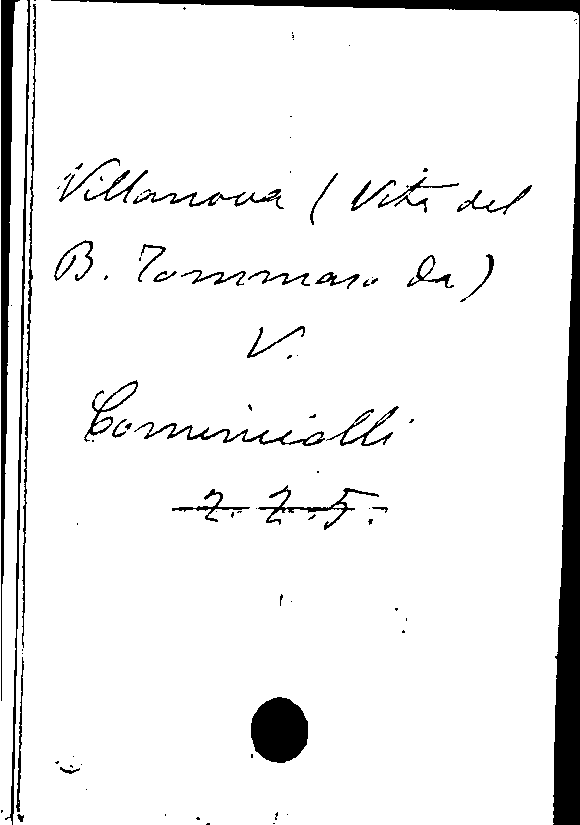 Villanova (Vita del
B. Tommaso da)
V.
Comincialli
2. 2. 5.